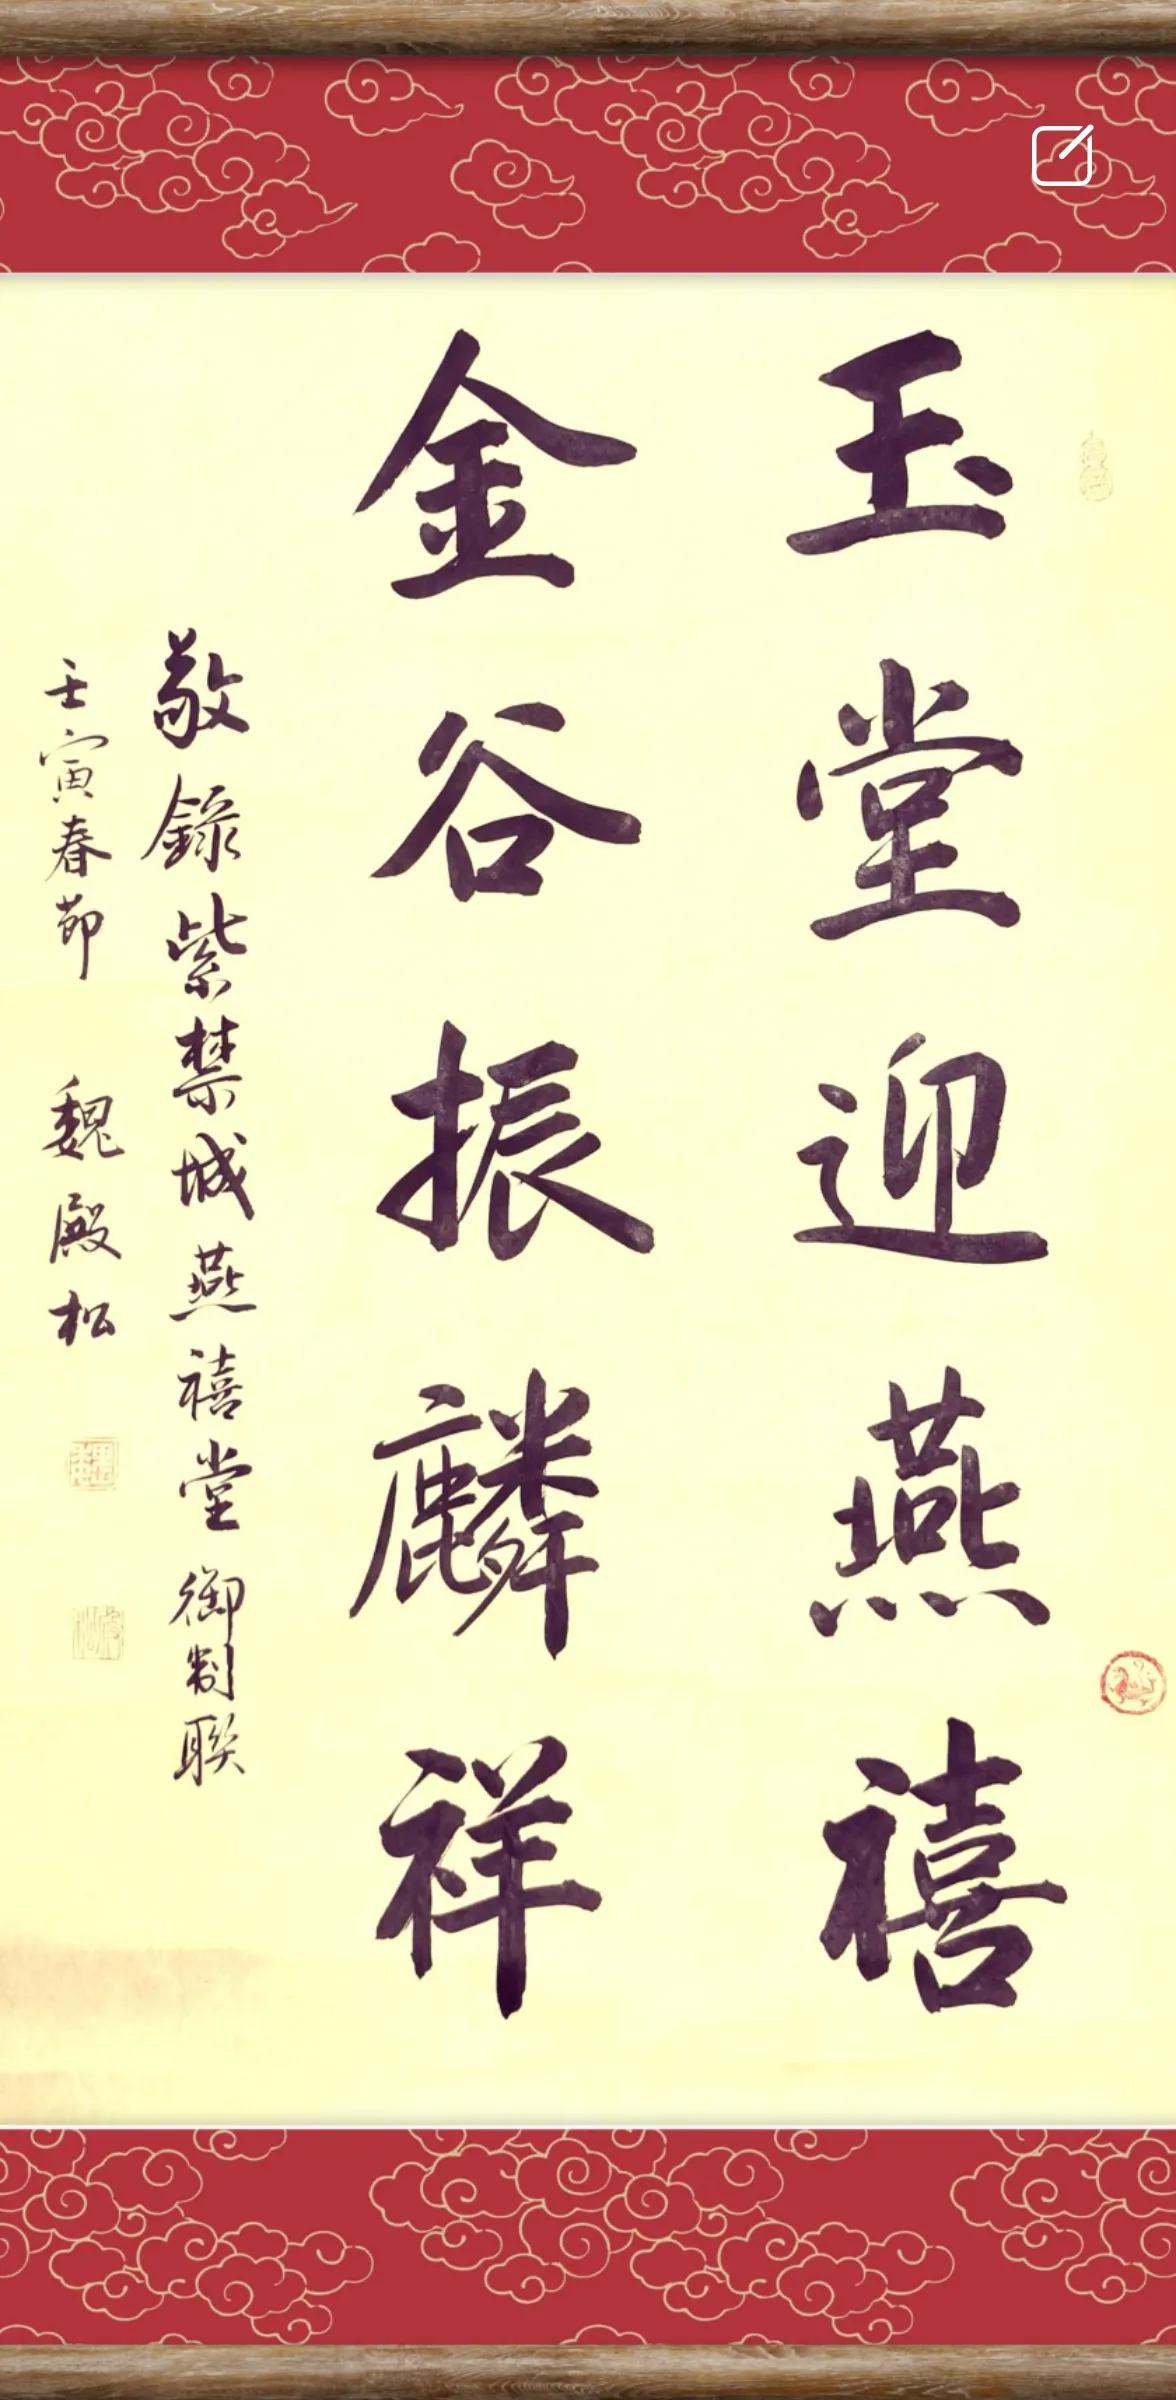 玉堂迎燕禧
金谷振麟祥
敬録紫禁城燕禧堂御制联
壬寅春节 魏殿松